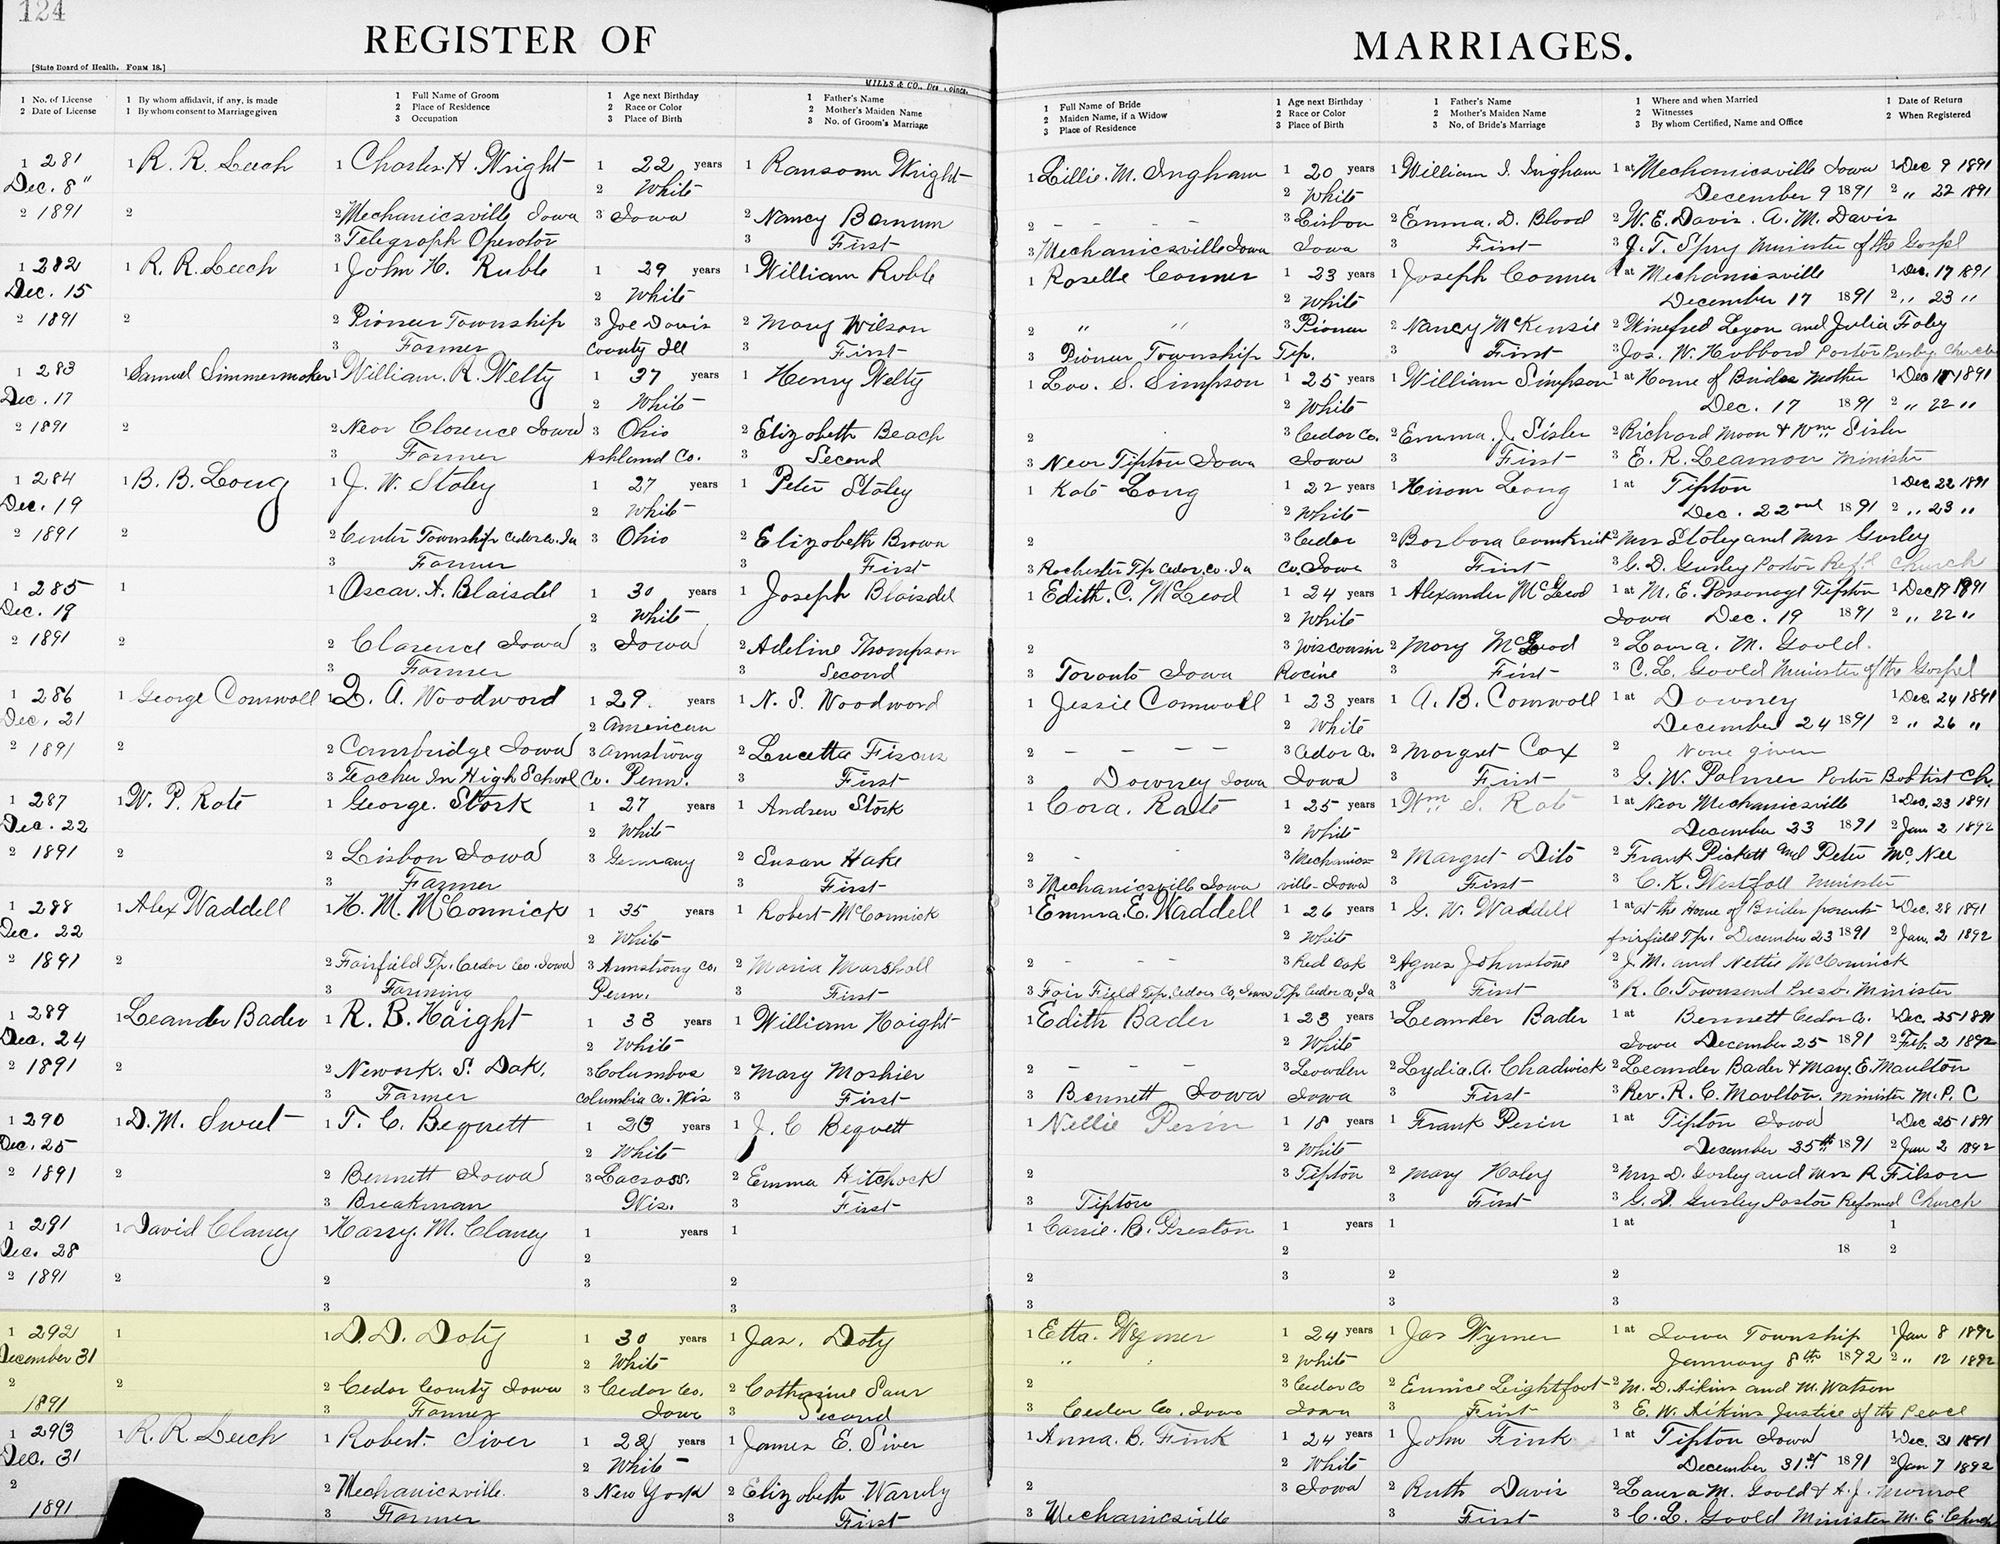 124
REGISTER OF MARRIAGES.
[State Board of Health. Form 18.]
MILLS & CO., Des
1 No. of License
2 Date of License
1 By whom affidavit, if any, is made
1 By whom consent to Marriage given
1 Full Name of Groom
2 Place of Residence
3 Occupation
1 Age next Birthday
2 Race or Color
3 Place of Birth
1 Father's Name
2 Mother's Maiden Name
3 No. of Groom's Marriage
1 Full Name of Bride
2 Maiden Name, if a Widow
3 Place of Residence
1 Age next Birthday
2 Race or Color
3 Place of Birth
1 Father's Name
2 Mother's Maiden Name
3 No. of Bride's Marriage
1 Where and when Married
2 Witnesses
3 By whom Certified, Name and Office
1 Date of Return
2 When Registered
1 281 1 R. R. Leech 1 Charles H. Wright 1 22 years 1 Ransom Wright 1 Lillie. M. Ingham 1 20 years 1 William I. Ingham 1 at Mechanicsville Iowa 1 Dec 9 1891
Dec. 8" 2 White 2 White December 9 1891 2 " 22 1891
2 1891 2 2 Mechanicsville Iowa 3 Iowa 2 Nancy 2 - - - 3 Lisbon 2 Emma. D. Blood 2 W. E. Davis. A. M. Davis
3 Telegraph Operator 3 First 3 Mechanicsville Iowa Iowa 3 First 3 J. T. Spry Minister of the Gospel
1 282 1 R. R. Leech 1 John H. Ruble 1 29 years 1 William Ruble 1 Roselle Conner 1 23 years 1 Joseph Conner 1 at Mechanicsville 1 Dec. 17 1891
Dec. 15 2 White 2 White December 17 1891 2 " 23 "
2 1891 2 2 Pioneer Township 3 Joe Davis 2 Mary Wilson 2 " " 3 Pioneer 2 Nancy McKensie 2 Winefred Lyon and Julia Foley
3 Farmer County Ill 3 First 3 Pioneer Township Tp. 3 First 3 Jos. W. Hubbard Pastor Presby. Church
1 283 1 Samuel Simmermaker 1 William. R. Welty 1 37 years 1 Henry Welty 1 Lou. S. Simpson 1 25 years 1 William Simpson 1 at Home of Brides Mother 1 Dec 1891
Dec. 17 2 White 2 White Dec. 17 1891 2 " 22 "
2 1891 2 2 Near Clarence Iowa 3 Ohio 2 Elizabeth Beach 2 3 Cedar Co. 2 Emma. J. Sisler 2 Richard Moon & Wm Sisler
3 Farmer Ashland Co. 3 Second 3 Near Tipton Iowa Iowa 3 First 3 E. R. Leamon Minister
1 284 1 B. B. Long 1 J. W. Staley 1 27 years 1 Peter Staley 1 Kate Long 1 22 years 1 Hiram Long 1 at Tipton 1 Dec 22 1891
Dec. 19 2 White 2 White Dec. 22nd 1891 2 " 23 "
2 1891 2 2 Center Township Cedar Co. Ia 3 Ohio 2 Elizabeth Brown 2 3 Cedar 2 Barbara 2 Mrs Staley and Mrs Gurley
3 Farmer 3 First 3 Rochester Tp Cedar, Co. Ia Co. Iowa 3 First 3 G. D. Gurley Pastor Ref'd Church
1 285 1 1 Oscar. A. Blaisdel 1 30 years 1 Joseph Blaisdel 1 Edith. C. McLeod 1 24 years 1 Alexander McLeod 1 at M. E. Parsonage Tipton 1 Dec 19 1891
Dec. 19 2 White 2 White Iowa Dec. 19 1891 2 " 22 "
2 1891 2 2 Clarence Iowa 3 Iowa 2 Adeline Thompson 2 3 Wisconsin 2 Mary McLeod 2 Laura. M. Goold.
3 Farmer 3 Second 3 Toronto Iowa Racine 3 First 3 C. L. Goold Minister of the Gospel
1 286 1 George Cornwall 1 L. A. Woodword 1 29 years 1 N. S. Woodword 1 Jessie Cornwall 1 23 years 1 A. B. Cornwall 1 at Downey 1 Dec. 24 1891
Dec. 21 2 American 2 White December 24 1891 2 " 26 "
2 1891 2 2 Cambridge Iowa 3 Armstrong 2 Lucetta Fiscus 2 - - - - 3 Cedar Co. 2 Margret Cox 2 None given
3 Teacher In High School Co. Penn. 3 First 3 Downey Iowa Iowa 3 First 3 G. W. Palmer Pastor Babtist Ch.
1 287 1 W. P. Rate 1 George. Stork 1 27 years 1 Andrew Stork 1 Cora. Rate 1 25 years 1 Wm S. Rate 1 at Near Mechanicsville 1 Dec. 23 1891
Dec. 22 2 White 2 White December 23 1891 2 Jan 2 1892
2 1891 2 2 Lisbon Iowa 3 Germany 2 Susan Hake 2 - - 3 Mechanics 2 Margret Dito 2 Frank Pickett and Peter McNee
3 Farmer 3 First 3 Mechanicsville Iowa ville-Iowa 3 First 3 C. K. Westfall Minister
1 288 1 Alex Waddell 1 H. M. McCormick 1 35 years 1 Robert McCormick 1 Emma. E. Waddell 1 26 years 1 G. W. Waddell 1 at at the Home of Brides parents 1 Dec. 28 1891
Dec. 22 2 White 2 White fairfield Tp. December 23 1891 2 Jan. 2 1892
2 1891 2 2 Fairfield Tp. Cedar Co. Iowa 3 Armstrong Co. 2 Maria Marshall 2 - - - 3 Red Oak 2 Agnes Johnstone 2 J. M. and Nettie McCormick
3 Farming Penn. 3 First 3 Fair Field Tp. Cedar Co, Iowa Tp Cedar Co, Ia 3 First 3 R. C. Townsend Presb. Minister
1 289 1 Leander Bader 1 R. B. Haight 1 33 years 1 William Haight 1 Edith Bader 1 23 years 1 Leander Bader 1 at Bennett Cedar Co. 1 Dec. 25 1891
Dec. 24 2 White 2 White Iowa December 25 1891 2 Feb. 2 1892
2 1891 2 2 Newark. S. Dak. 3 Columbus 2 Mary Moshier 2 - - - 3 Lowden 2 Lydia. A. Chadwick 2 Leander Bader & Mary. E. Maulton
3 Farmer Columbia Co. Wis 3 First 3 Bennett Iowa Iowa 3 First 3 Rev. R. C. Moulton, Minister M. P. C
1 290 1 D. M. Sweet 1 T. C. Bequett 1 23 years 1 J. C Bequett 1 Nellie Perin 1 18 years 1 Frank Perin 1 at Tipton Iowa 1 Dec 25 1891
Dec. 25 2 White 2 White December 25th 1891 2 Jan 2 1892
2 1891 2 2 Bennett Iowa 3 Lacross. 2 Emma Hitchock 2 3 Tipton 2 Mary Haley 2 Mrs D. Gurley and Mrs R Filson
3 Breakman Wis. 3 First 3 Tipton 3 First 3 G. D. Gurley Pastor Reformed Church
1 291 1 David Claney 1 Harry. M. Claney 1 years 1 1 Carrie. B. Preston 1 years 1 1 at 1
Dec. 28 2 2 18 2
2 1891 2 2 3 2 2 3 2 2
3 3 3 3 3
1 292 1 1 D. D. Doty 1 30 years 1 Jas. Doty 1 Etta. Wymer 1 24 years 1 Jas Wymer 1 at Iowa Township 1 Jan 8 1892
December 31 2 White " " 2 White January 8th 1892 2 " 12 1892
2 2 2 Cedar County Iowa 3 Cedar Co. 2 Catharine Saur 2 3 Cedar Co 2 Eunice Leightfoot 2 M. D. Aikins and M. Watson
1891 3 Farmer Iowa 3 Second 3 Cedar Co. Iowa Iowa 3 First 3 E. W. Aikins Justice of the Peace
1 293 1 R. R. Leech 1 Robert Siver 1 22 years 1 James E. Siver 1 Anna. B. Fink 1 24 years 1 John Fink 1 at Tipton Iowa 1 Dec. 31 1891
Dec. 31 2 White 2 White December 31st 1891 2 Jan 7 1892
2 2 Mechanicsville. 3 New York 2 Elizabeth 2 3 Iowa 2 Ruth Davis 2 Laura M. Goold & A. J. Monroe
1891 3 Farmer 3 First 3 Mechanicsville 3 First 3 C. L. Goold Minister M. E. Church